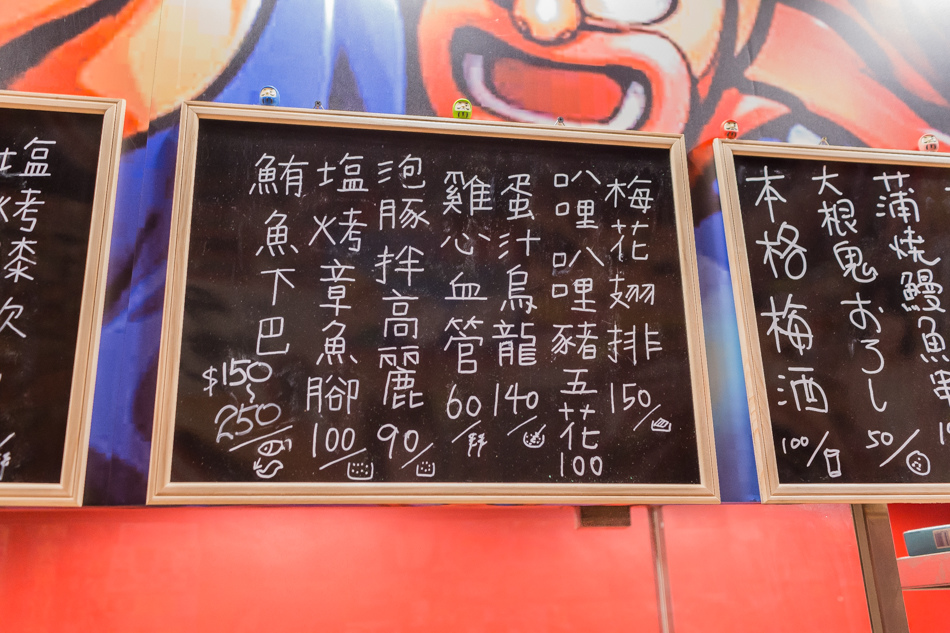 蒲焼鰻魚串
大根鬼おろし 50/
本格梅酒 100/
梅花翅排 150/
叭哩叭哩豬五花 100
蛋汁烏龍 140/
雞心血管 60/串
泡豚拌高麗 90/
塩烤章魚腳 100/
鮪魚下巴 $150~250/
塩烤